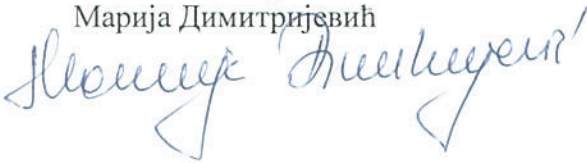 Марија Димитријевић
Марија Димитријевић